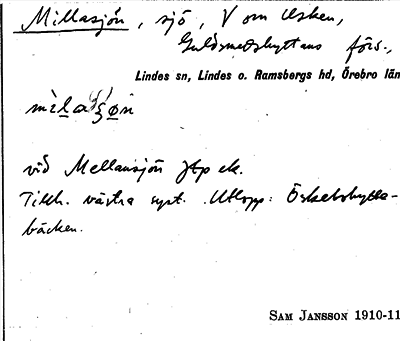 Millasjön, sjö, V om Usken,
Guldsmedshyttans förs.,
Lindes sn, Lindes o. Ramsbergs hd, Örebro län
vid Mellansjön Jtp ek.
Tillh. västra syst. Utlopp: Öskebohytte-
bäcken.
SAM JANSSON 1910-11